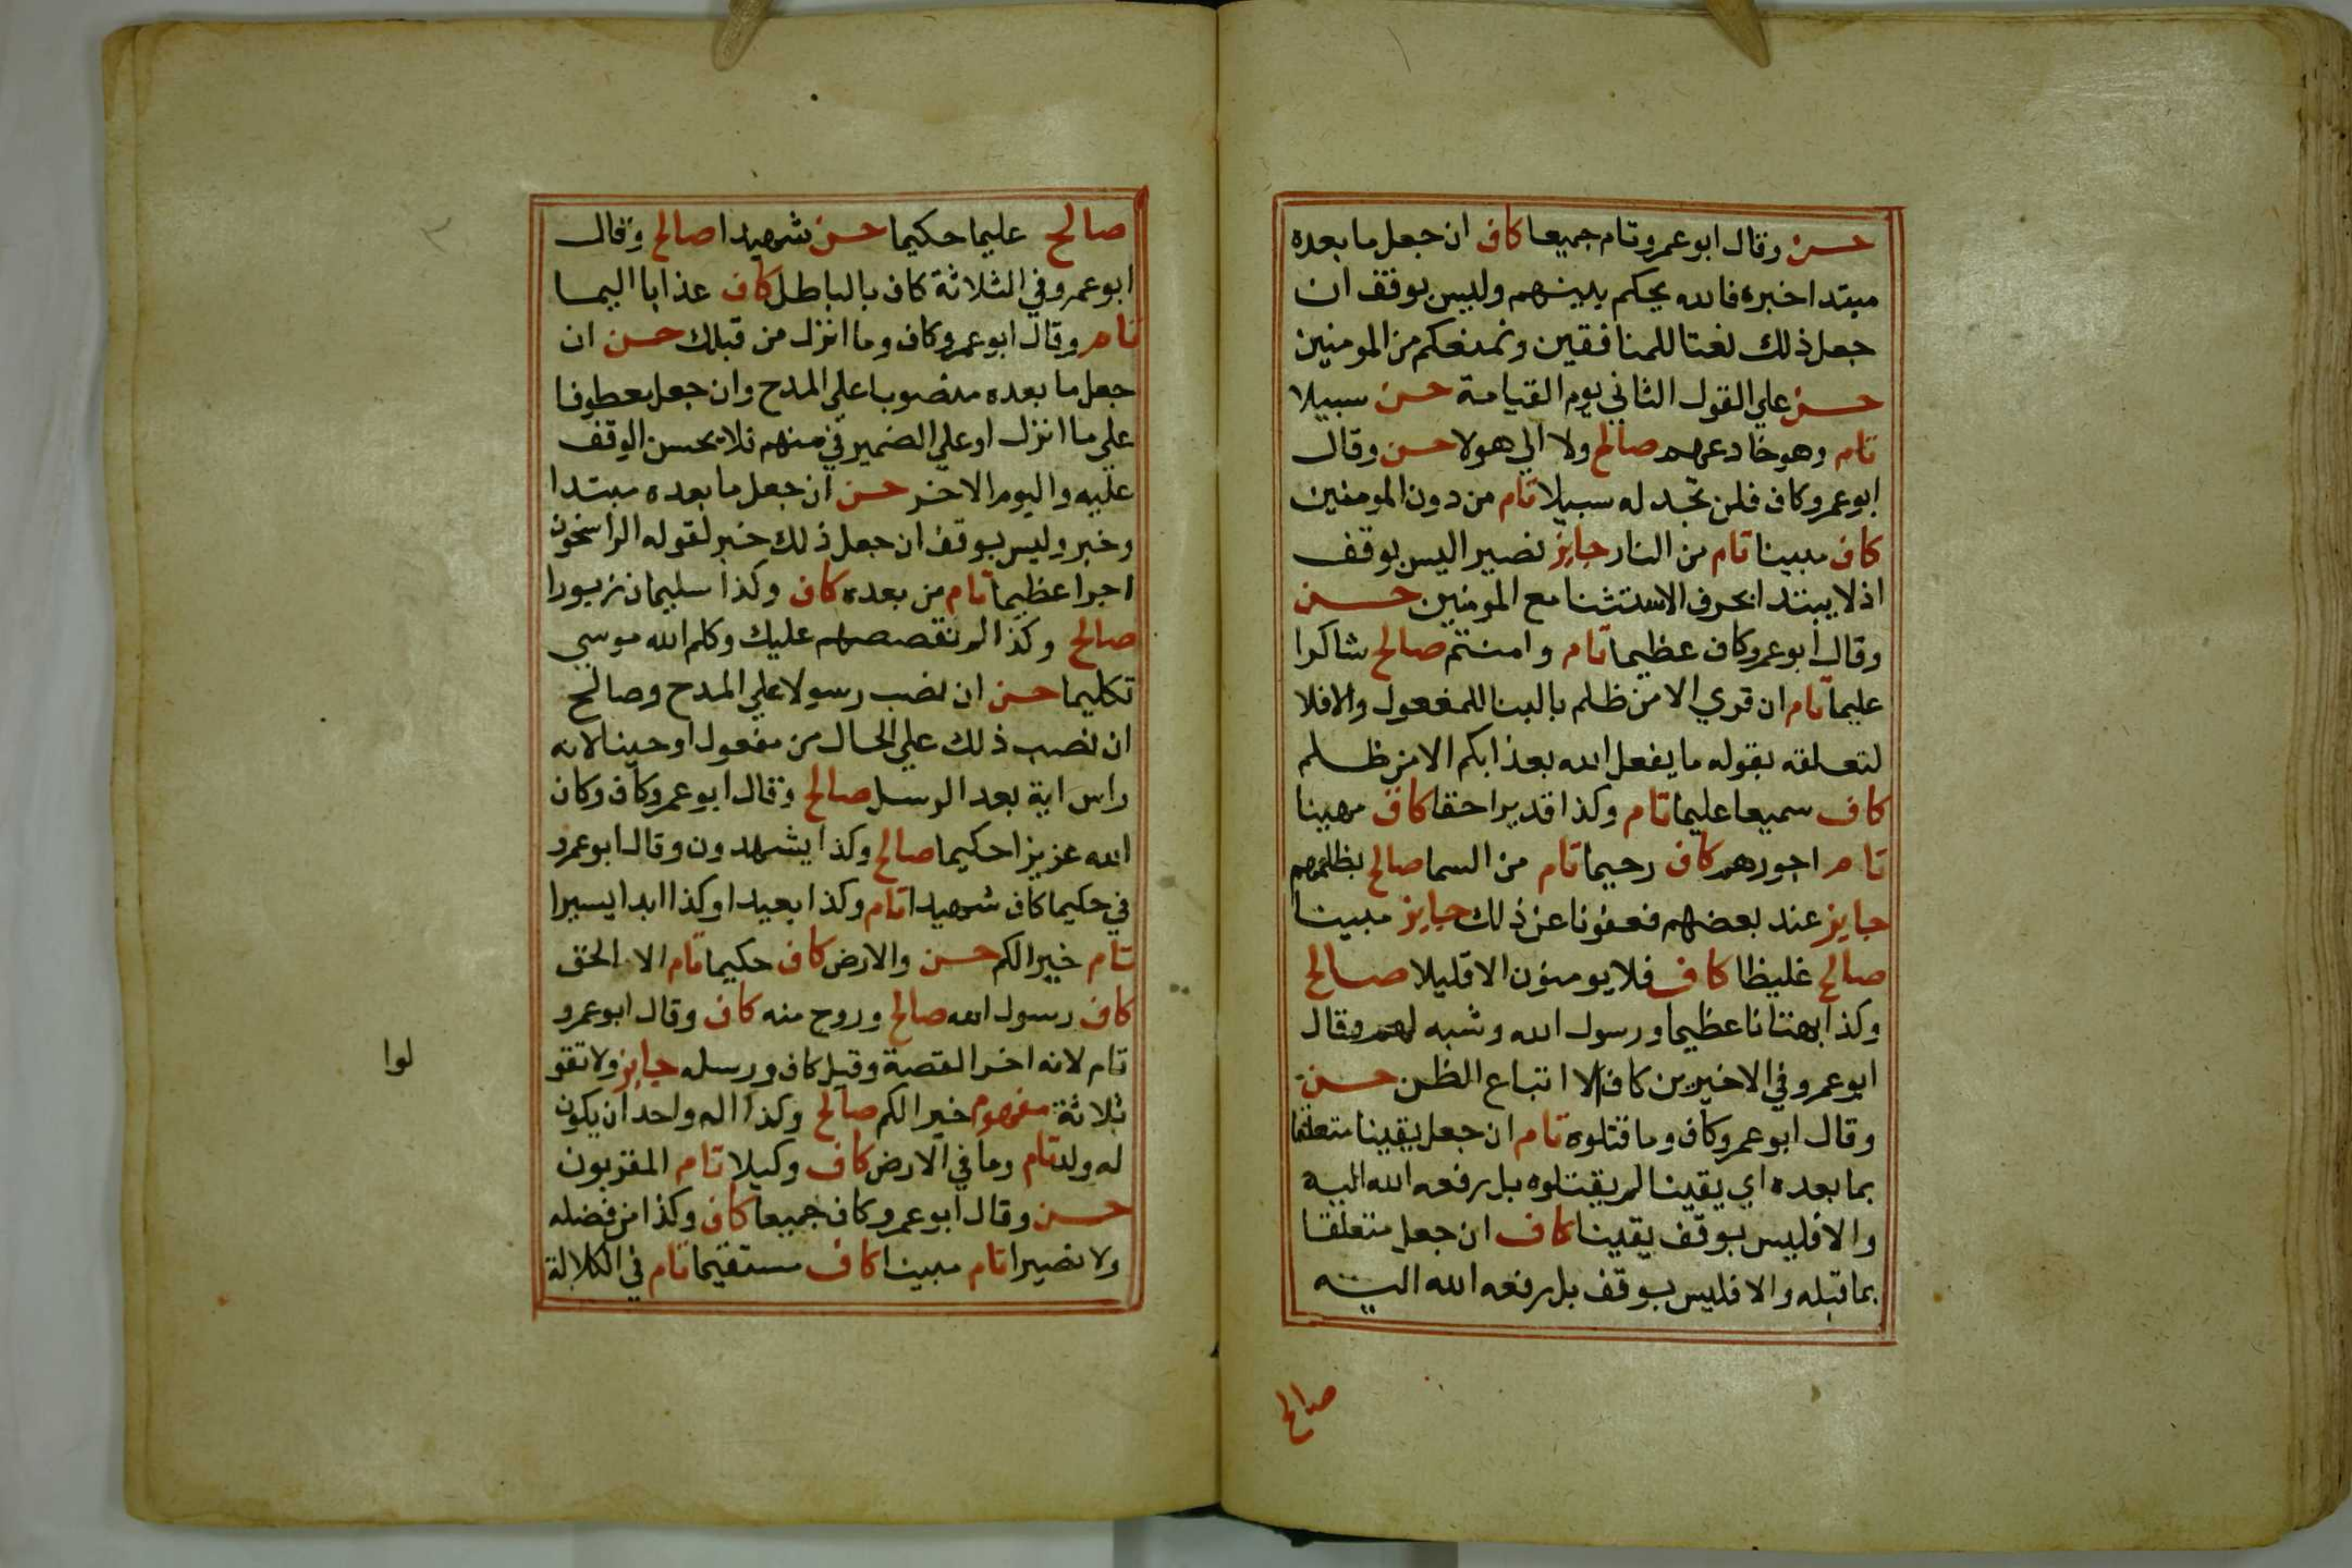 حسن وقال ابوعمرو تام جميعا كاف ان جعل ما بعده
مبتدا خبره فالله يحكم بينهم وليس بوقف ان
جعل ذلك نعتا للمنافقين ونمنعكم من المومنين
حسن علي القول الثاني يوم القيامة حسن سبيلا
تام وهو خادعهم صالح ولا الي هولا حسن وقال
ابوعمرو كاف فلن تجد له سبيلا تام من دون المومنين
كاف مبينا تام من النار جايز نصيرا ليس بوقف
اذ لا يبتدا بحرف الاستثنا مع المومنين حسن
وقال ابوعمرو كاف عظيما تام وامنتم صالح شاكرا
عليما تام ان قري الا من ظلم بالبنا للمفعول والا فلا
لتعلقه بقوله ما يفعل الله بعذابكم الا من ظلم
كاف سميعا عليما تام وكذا قديرا حقا كاف مهينا
تام اجورهم كاف رحيما تام من السما صالح بظلمهم
جايز عند بعضهم فعفونا عن ذلك جايز مبينا
صالح غليظا كاف فلا يومنون الا قليلا صالح
وكذا بهتانا عظيما ورسول الله وشبه لهم وقال
ابوعمرو في الاخيرين كاف الا اتباع الظن حسن
وقال ابوعمرو كاف وما قتلوه تام ان جعل يقينا متعلقا
بما بعده اي يقينا لم يقتلوه بل رفعه الله اليه
والا فليس بوقف يقينا كاف ان جعل متعلقا
بما قبله والا فليس بوقف بل رفعه الله اليه
صالح
صالح عليما حكيما حسن شهيدا صالح وقال
ابوعمرو في الثلاثة كاف بالباطل كاف عذابا اليما
تام وقال ابوعمرو كاف وما انزل من قبلك حسن ان
جعل ما بعده منصوبا علي المدح وان جعل معطوفا
علي ما انزل او علي الضمير في منهم فلا يحسن الوقف
عليه واليوم الاخر حسن ان جعل ما بعده مبتدا
وخبر وليس بوقف ان جعل ذلك خبر لقوله الراسخون
اجرا عظيما تام من بعده كاف وكذا سليمان زبورا
صالح وكذا لم نقصصهم عليك وكلم الله موسي
تكليما حسن ان نصب رسولا علي المدح وصالح
ان نصب ذلك علي الحال من مفعول اوحينا لانه
راس اية بعد الرسل صالح وقال ابوعمرو كاف وكان
الله عزيزا حكيما صالح وكذا يشهدون وقال ابوعمرو
في حكيما كاف شهيدا تام وكذا بعيدا وكذا ابدا يسيرا
تام خيرا لكم حسن والارض كاف حكيما تام الا الحق
كاف رسول الله صالح وروح منه كاف وقال ابوعمرو
تام لانه اخر القصة وقيل كاف ورسله جايز ولا تقو
لوا
ثلاثة مفهوم خيرا لكم صالح وكذا اله واحد ان يكون
له ولد تام وما في الارض كاف وكيلا تام المقربون
حسن وقال ابوعمرو كاف جميعا كاف وكذا من فضله
ولا نصيرا تام مبينا كاف مستقيما تام في الكلالة